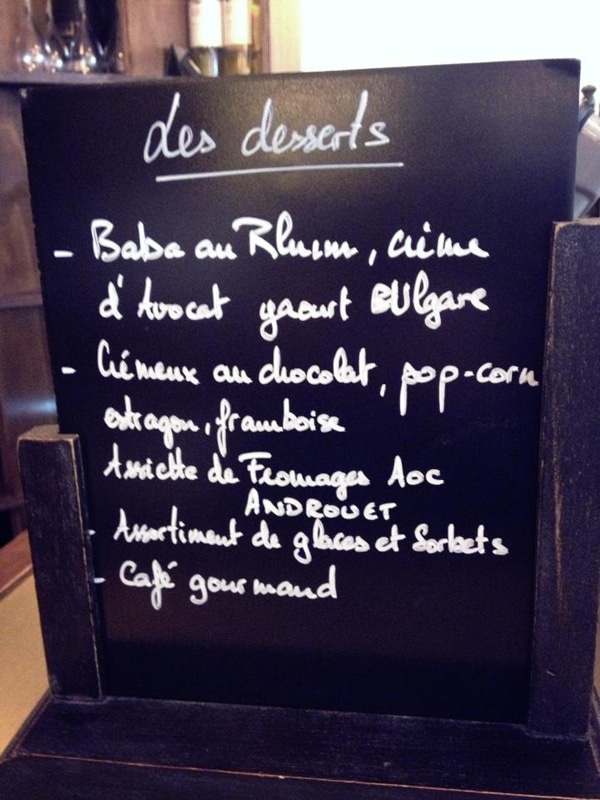 Les desserts
- Baba au Rhum, crème
d'Avocat yaourt BUlgare
- Crémeux au chocolat, pop-corn
estragon, framboise
Assiette de Fromages Aoc
ANDROUET
- Assortiment de glaces et Sorbets
- Café gourmand